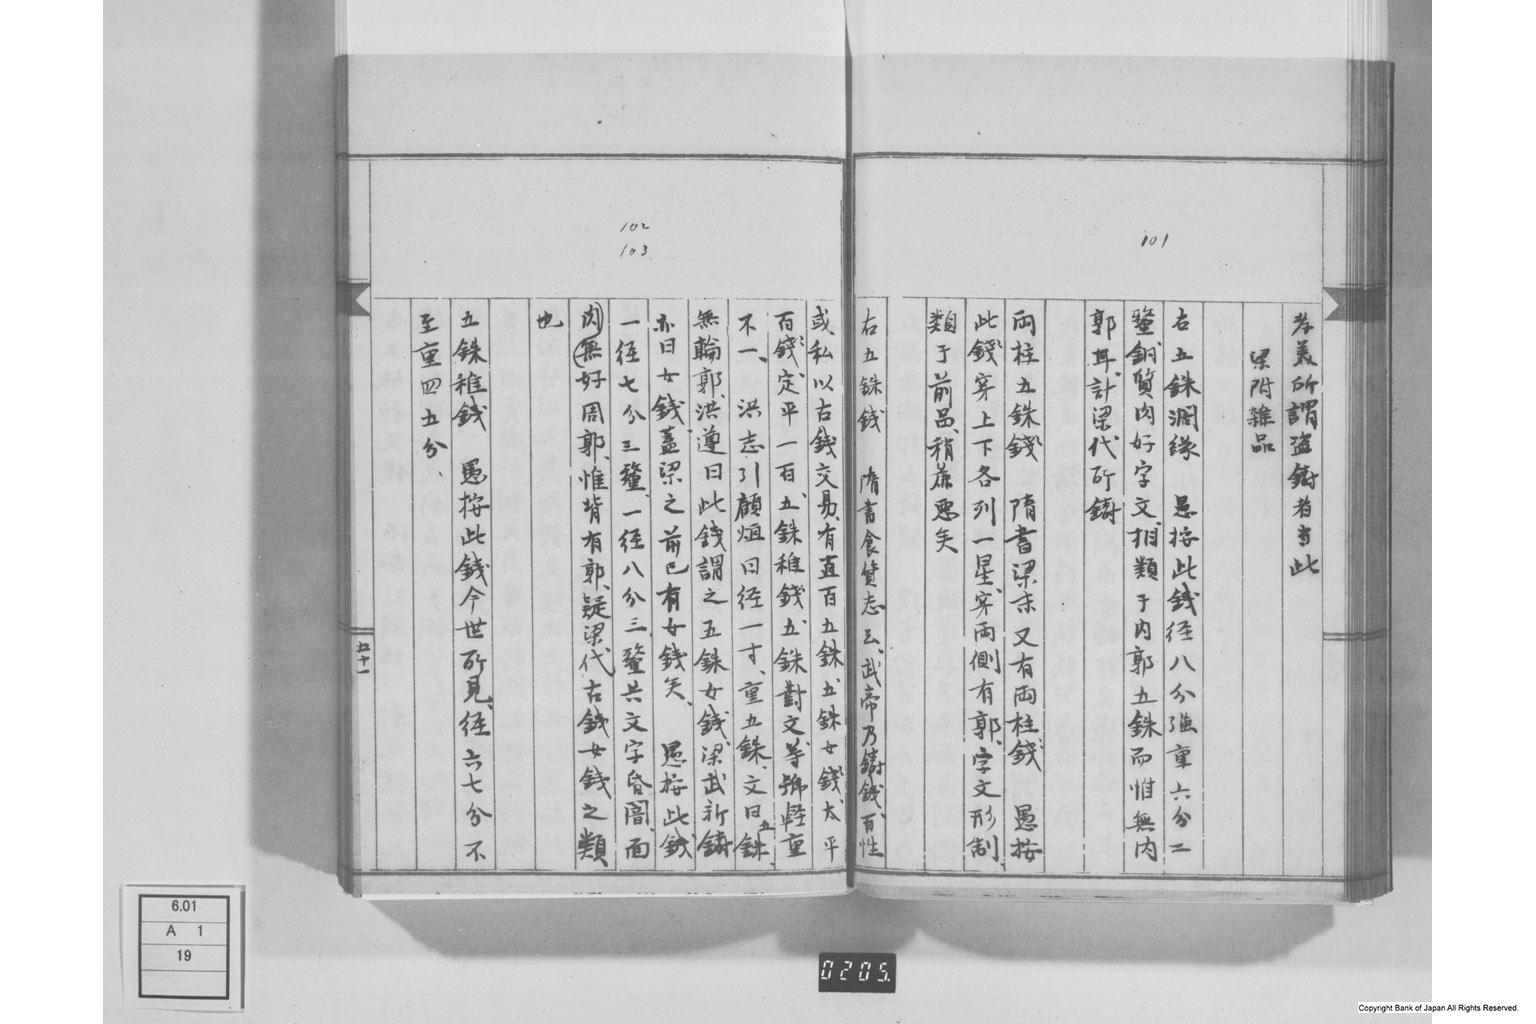 101
孝美所謂盗鋳者当此
梁附雑品
右五銖濶縁 愚按此銭径八分強重六分二
釐銅質肉好字文相類于内郭五銖而惟無内
郭耳計梁代所鋳
両柱五銖銭 隋書梁末又有両柱銭 愚按
此銭穿上下各列一星穿両側有郭字文形制
類于前品稍麁悪矣
右五銖銭 隋書食貨志云武帝乃鋳銭百姓
102
103
或私以古銭交易有直百五銖五銖女銭太平
百銭定平一百五銖稚銭五銖對文等號軽重
不一、洪志引顧烜曰径一寸、重五銖、文曰五銖
無輪郭洪遵曰此銭謂之五銖女銭梁武新鋳
亦曰女銭蓋梁之前已有女銭矣、 愚按此銭
一径七分三釐、一径八分三釐共文字昏闇、面
肉無好周郭惟背有郭疑梁代古銭女銭之類
也
五銖稚銭 愚按此銭今世所見径六七分不
至重四五分、
五十一
6.01
A 1
19
0205.
Copyright Bank of Japan All Rights Reserved.